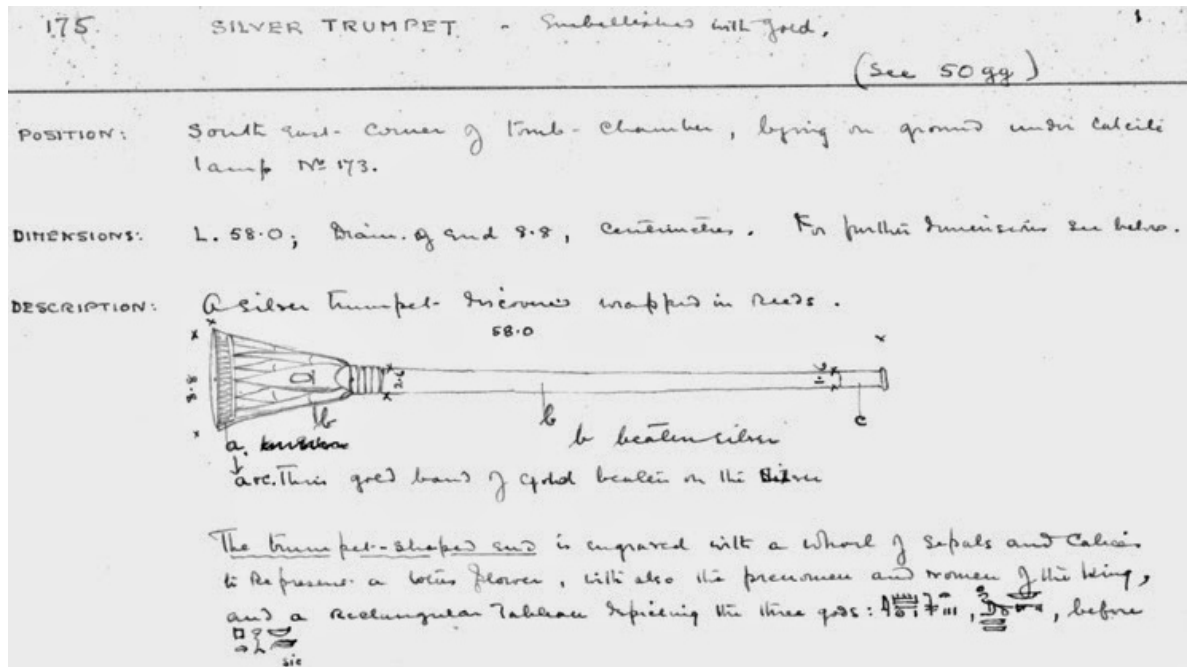 175. SILVER TRUMPET - Embellished with gold. 1
(See 50gg)
POSITION: South East- corner of tomb-chamber, lying on ground under calcite
lamp No 173.
DIMENSIONS: L. 58.0; Diam. of end 8.8, centimetres. For further dimensions see below.
DESCRIPTION: A silver trumpet discovered wrapped in reeds.
58.0
8.8
2.6
b
b
c
b beaten silver
a.
a & c. Thin gold band of gold beaten on the silver
The trumpet-shaped end is engraved with a whorl of sepals and calices
to represent a lotus flower, with also the prenomen and nomen of the King,
and a rectangular Tableau depicting the three gods: , before
sic